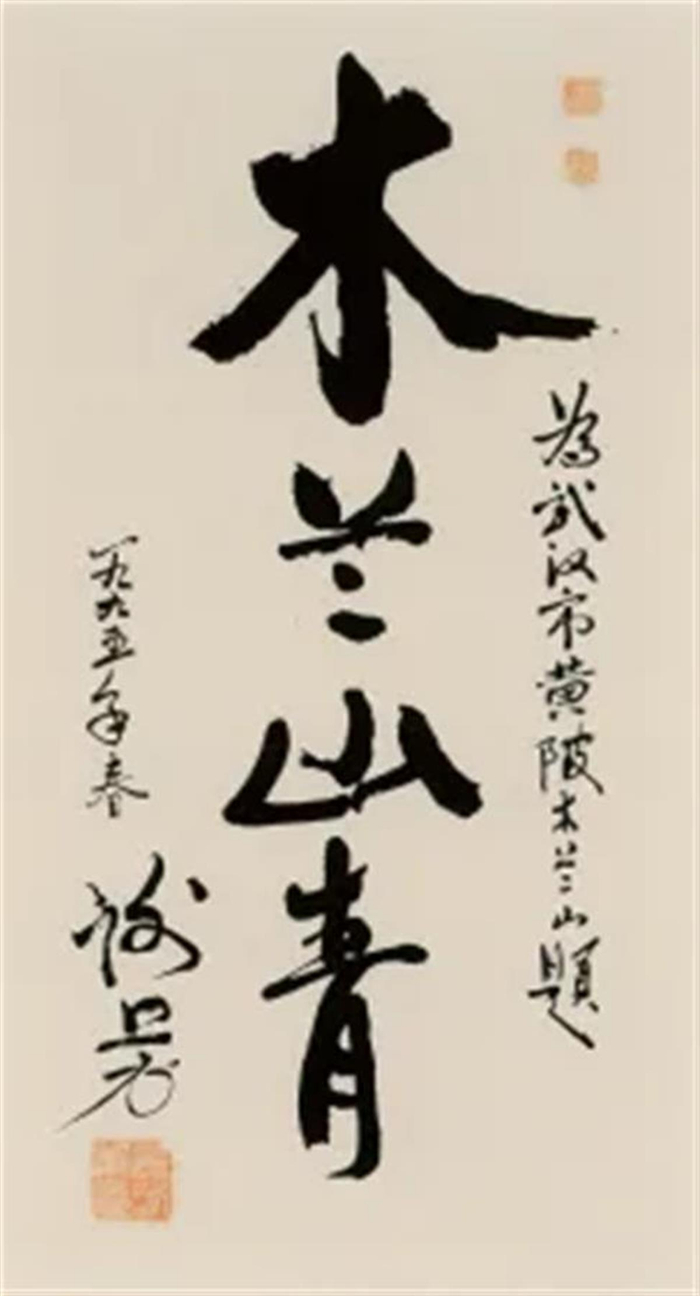 為武汉市黄陂木兰山題
木兰山青
一九九五年春